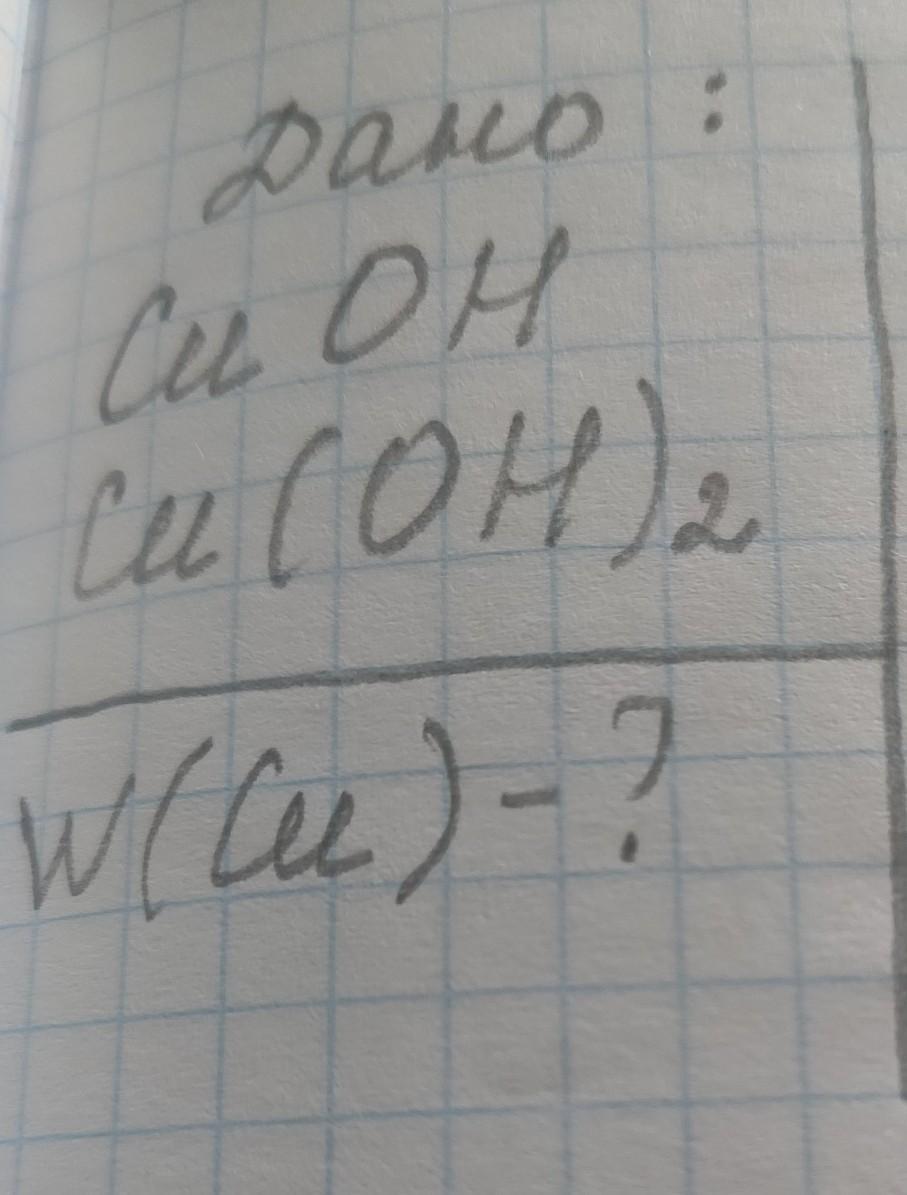 Дано :
Cu OH
Cu(OH)2
W(Cu)-?